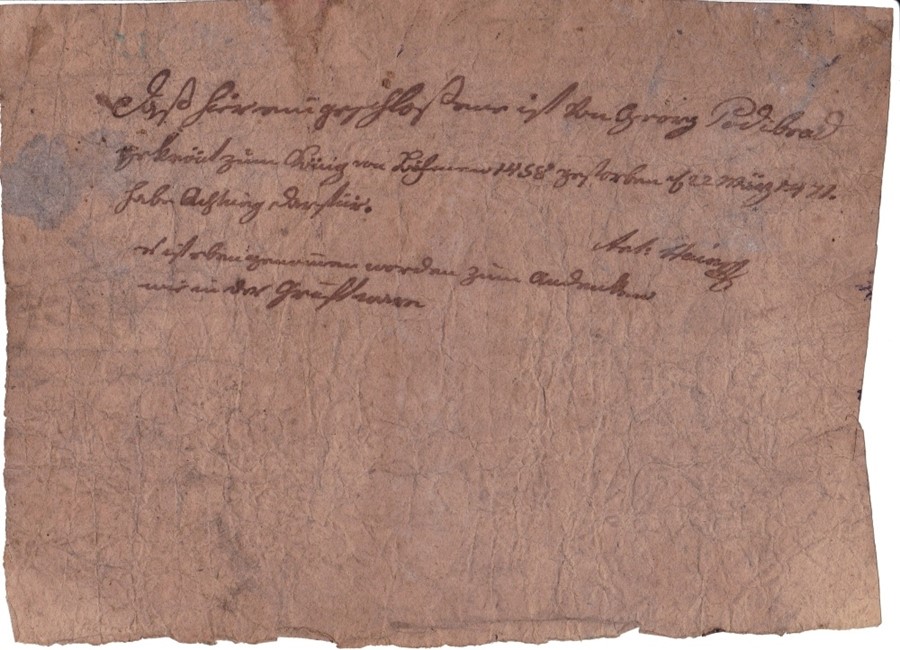 Daß hier eingeschloßene ist Von Georg Podibrad
gekrönt zum König von Böhmen 1458 gestorben d 22 März 1471.
habe Achtung darfür.
Ant:
es ist eben genommen worden zum Andenken
wie in der Gruft waren